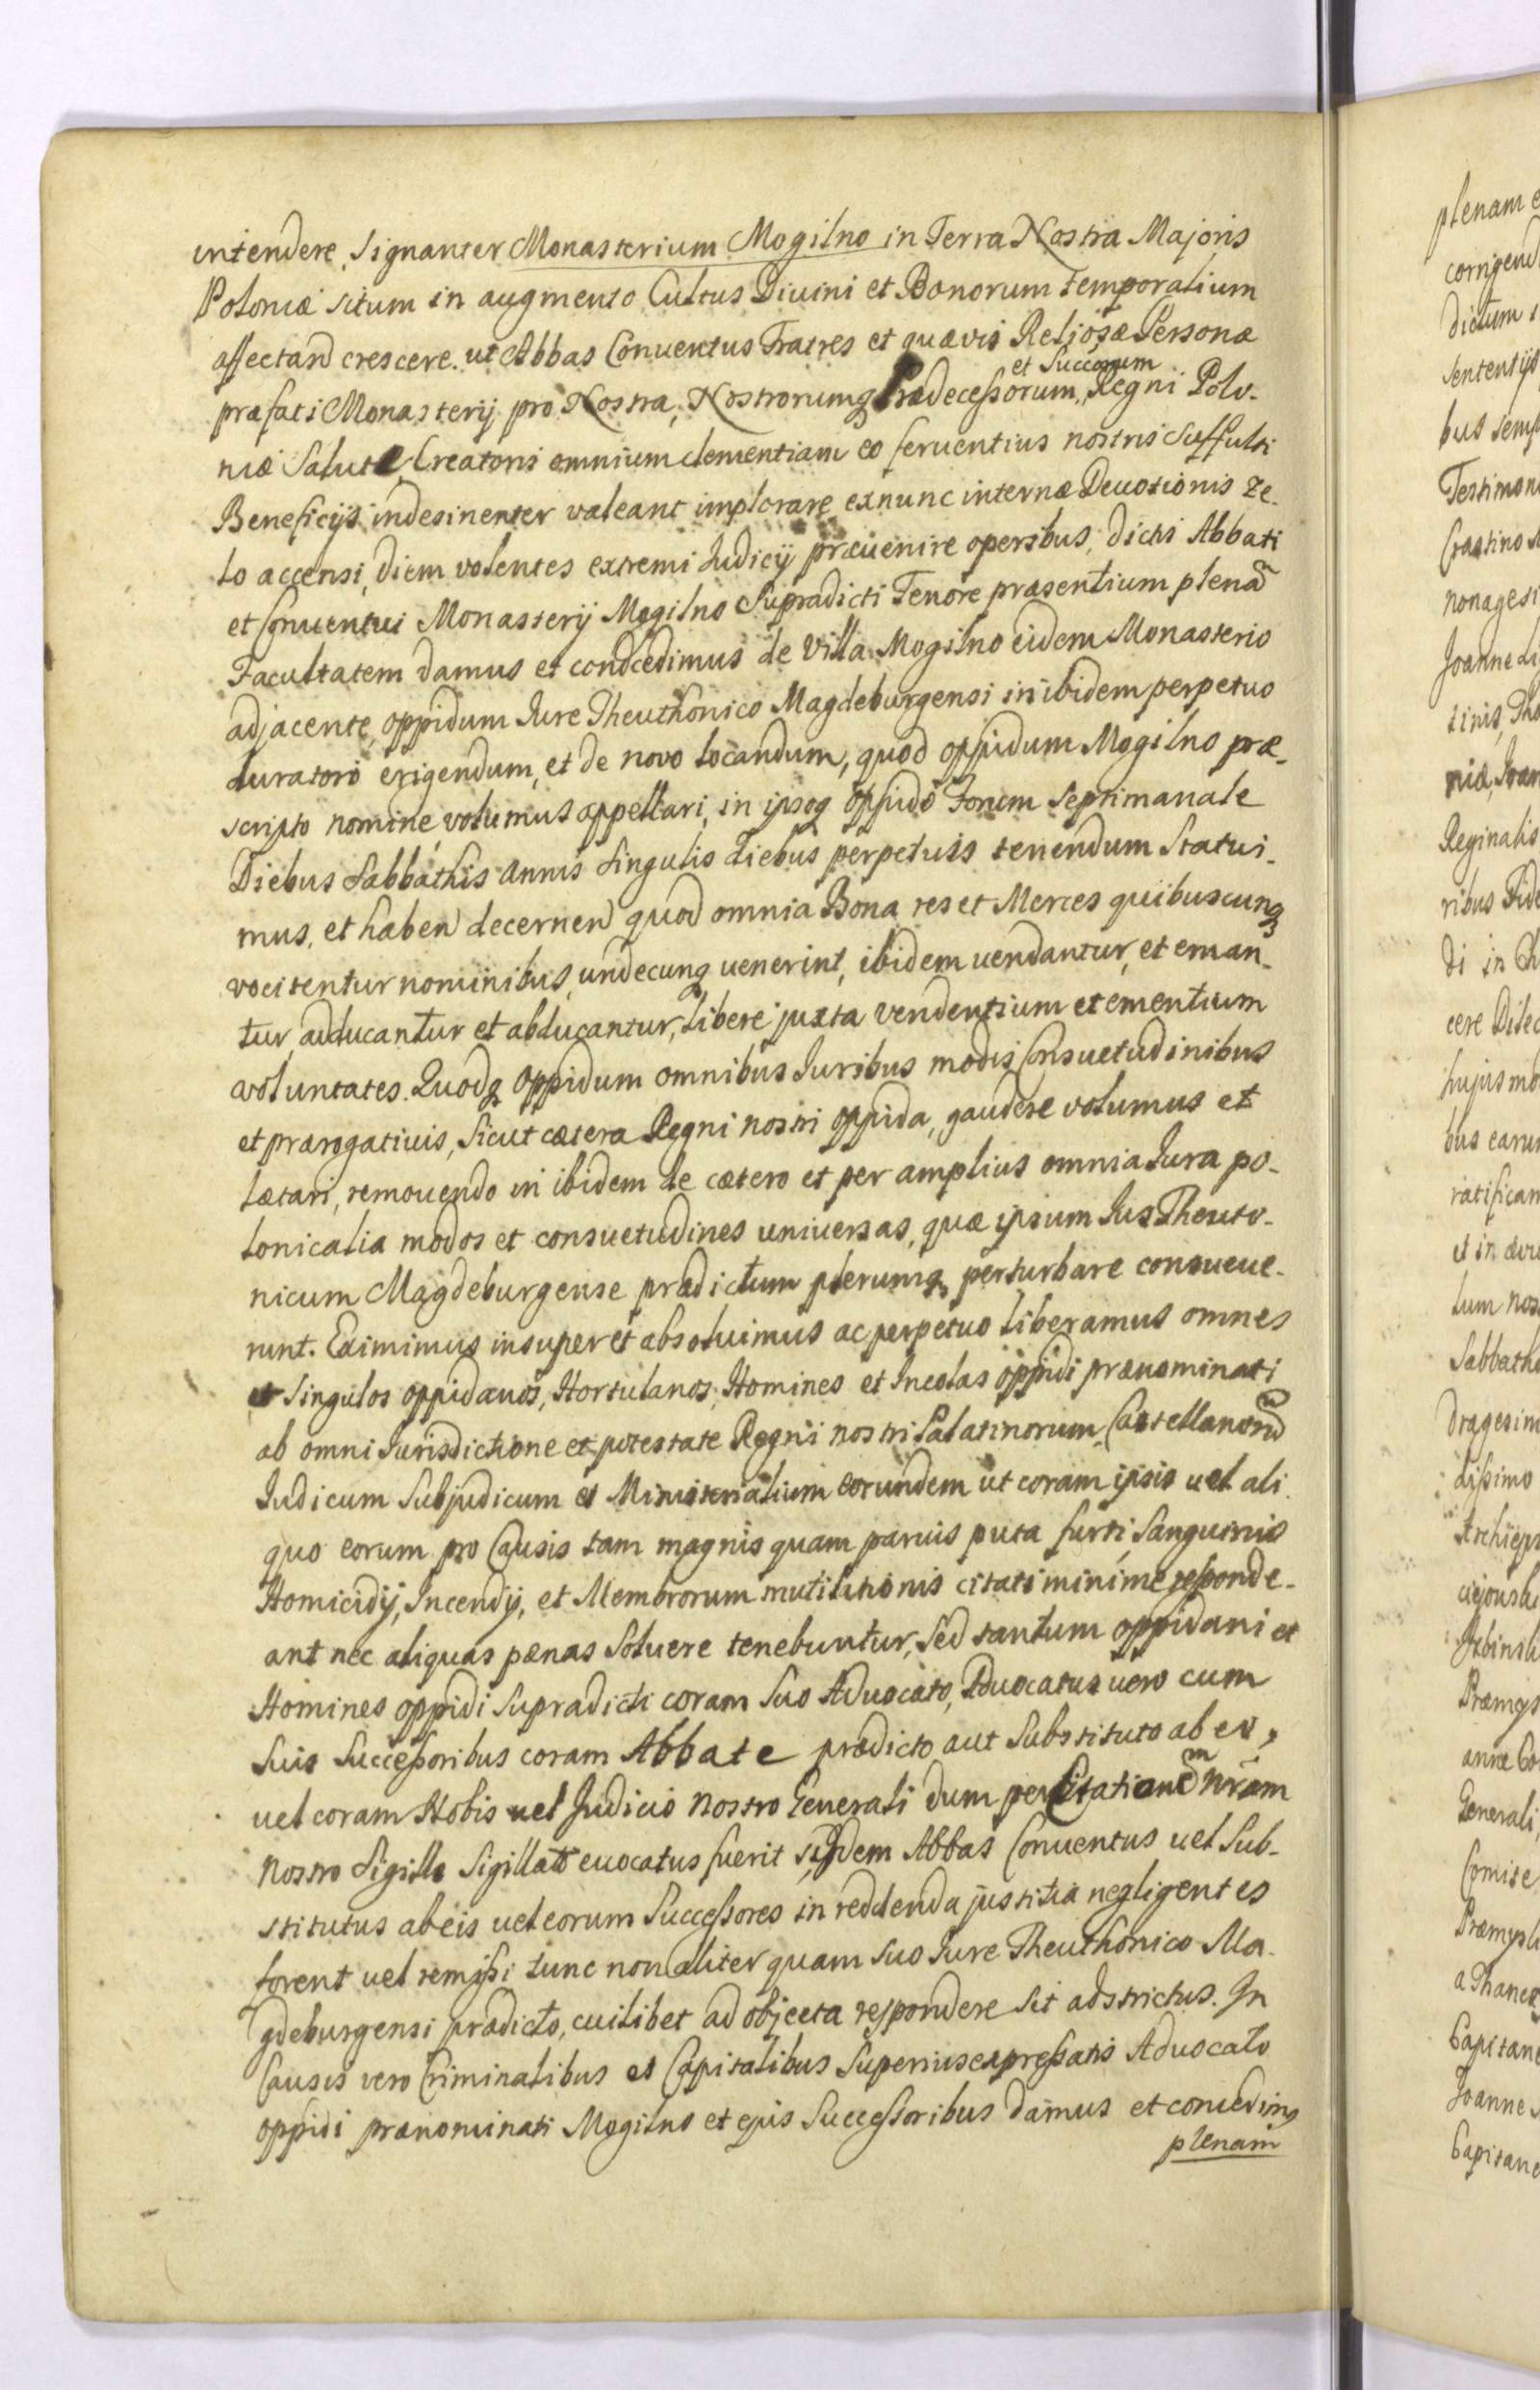 intendere, signanter Monasterium Mogilno in Terra Nostra Majoris
Poloniæ situm in augmento Cultus Divini et Bonorum temporalium
affectand crescere. ut Abbas Conventus Fratres et quævis Reliosæ Personæ
et Succorum
præfati Monasterij pro Nostra, Nostrorumq Prædecessorum, Regni Polo-
niæ Salute Creatoris omnium clementiam eo feruentius nostris suffulti
Beneficijs indesinenter valeant implorare exnunc internæ Deuotionis Ze-
lo accensi, diem volentes extremi Iudicij præuenire operibus, dicti Abbati
et Conuentui Monasterij Mogilno Supradicti Tenore præsentium plenã
Facultatem damus et condcedimus de Villa Mogilno eidem Monasterio
adjacente, oppidum Iure Theuthonico Magdeburgensi in ibidem perpetuo
duratoro erigendum, et de novo locandum, quod oppidum Mogilno præ-
scripto nomine volumus appellari, in ipsoq oppido Forum Septimanale
Diebus Sabbathis annis singulis diebus perpetuis tenendum Statui-
mus, et haben decernen quod omnia Bona res et Merces quibuscunq
vocitentur nominibus, undecunq uenerint, ibidem uendantur, et eman-
tur adducantur et abducantur, libere juxta vendentium et ementium
voluntates. Quodq oppidum omnibus Iuribus modis Consuetudinibus
et prærogatiuis, sicut cætera Regni nostri oppida, gaudere volumus et
lætari, remouendo in ibidem de cætero et per amplius omnia Iura po-
lonicalia modos et consuetudines universas, quæ ipsum Ius Theuto-
nicum Magdeburgense prædictum plerumq perturbare consueue-
runt. Eximimus insuper et absoluimus ac perpetuo liberamus omnes
et singulos oppidanos, Hortulanos, Homines et Incolas oppidi prænominati
ab omni Iurisdictione et potestate Regni nostri Palatinorum, Castellanorũ
Iudicum Subjudicum et Ministerialium eorundem ut coram ipsis uel ali
quo eorum pro Causis tam magnis quam paruis puta furti, Sanguinis
Homicidij, Incendij, et Membrorum mutilitionis citati minime responde-
ant nec aliquas pænas Soluere tenebuntur, Sed tantum oppidani et
Homines oppidi Supradicti coram Suo Aduocato, Aduocatus uero cum
Suis Successoribus coram Abbate prædicto aut Substituto ab eo,
uel coram Nobis uel Judicio nostro Generali dum per Citationem nram
nostro Sigillo Sigillato euocatus fuerit siqdem Abbas Conuentus uel Sub-
stitutus ab eis uel eorum Successores in reddenda justitia negligentes
forent uel remissi tunc non aliter quam Suo Iure Theuthonico Ma-
gdeburgensi prædicto, cuilibet ad objecta respondere sit adstrictus. In
Causis vero Criminalibus et Capitalibus Superius expressatis Aduocato
oppidi prænominati Mogilno et ejus Successoribus damus et concedimq
plenam